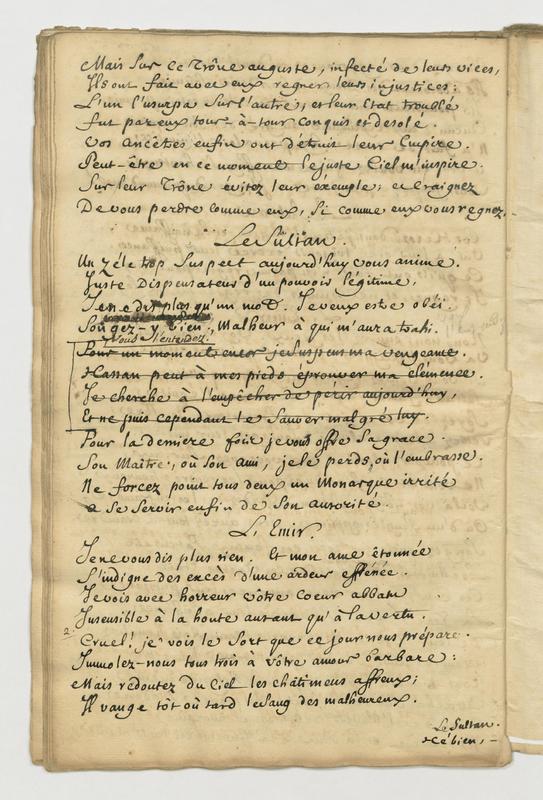 Mais sur ce Trône auguste, infecté de leurs vices,
Ils ont fait avec eux regner leurs injustices:
L'un l'usurpa sur l'autre, et leur Etat troublé
fut par eux tour-à-tour conquis et desolé.
Vos Ancêtres enfin ont détruit leur Empire.
Peut-être en ce moment le juste Ciel m'inspire.
Sur leur Trône évitez leur éxemple; et craignez
De vous perdre comme eux, si comme eux vous regnez.
Le Sultan.
Un zéle trop suspect aujourd'huy vous anime.
Juste Dispensateur d'un pouvoir légitime,
Je ne dis plus qu'un mot. Je veux estre obéi.
Songez-y bien, Malheur à qui m'aura trahi.
vous l'entendez.
Pour un moment encor je suspens ma vengeance.
Hassan peut à mes pieds éprouver ma clémence.
Je cherche à l'empêcher de périr aujourd'huy,
Et ne puis cependant le sauver malgré luy.
Pour la derniere fois je vous offre sa grace.
Son Maître, où son ami, je le perds, où l'embrasse.
Ne forcez point tous deux un Monarque irrité
a se servir enfin de son autorité.
L'Emir.
Je ne vous dis plus rien. Et mon ame étonnée
S'indigne des excès d'une ardeur effrénée.
Je vois avec horreur vôtre Coeur abbatu
Insensible à la honte autant qu'à la vertu.
Cruel! je vois le sort que ce jour nous prépare.
Immolez-nous tous trois à vôtre amour barbare:
Mais redoutez du Ciel les châtimens affreux;
Il vange tôt où tard le sang des malheureux.
Le Sultan.
Hé bien, -